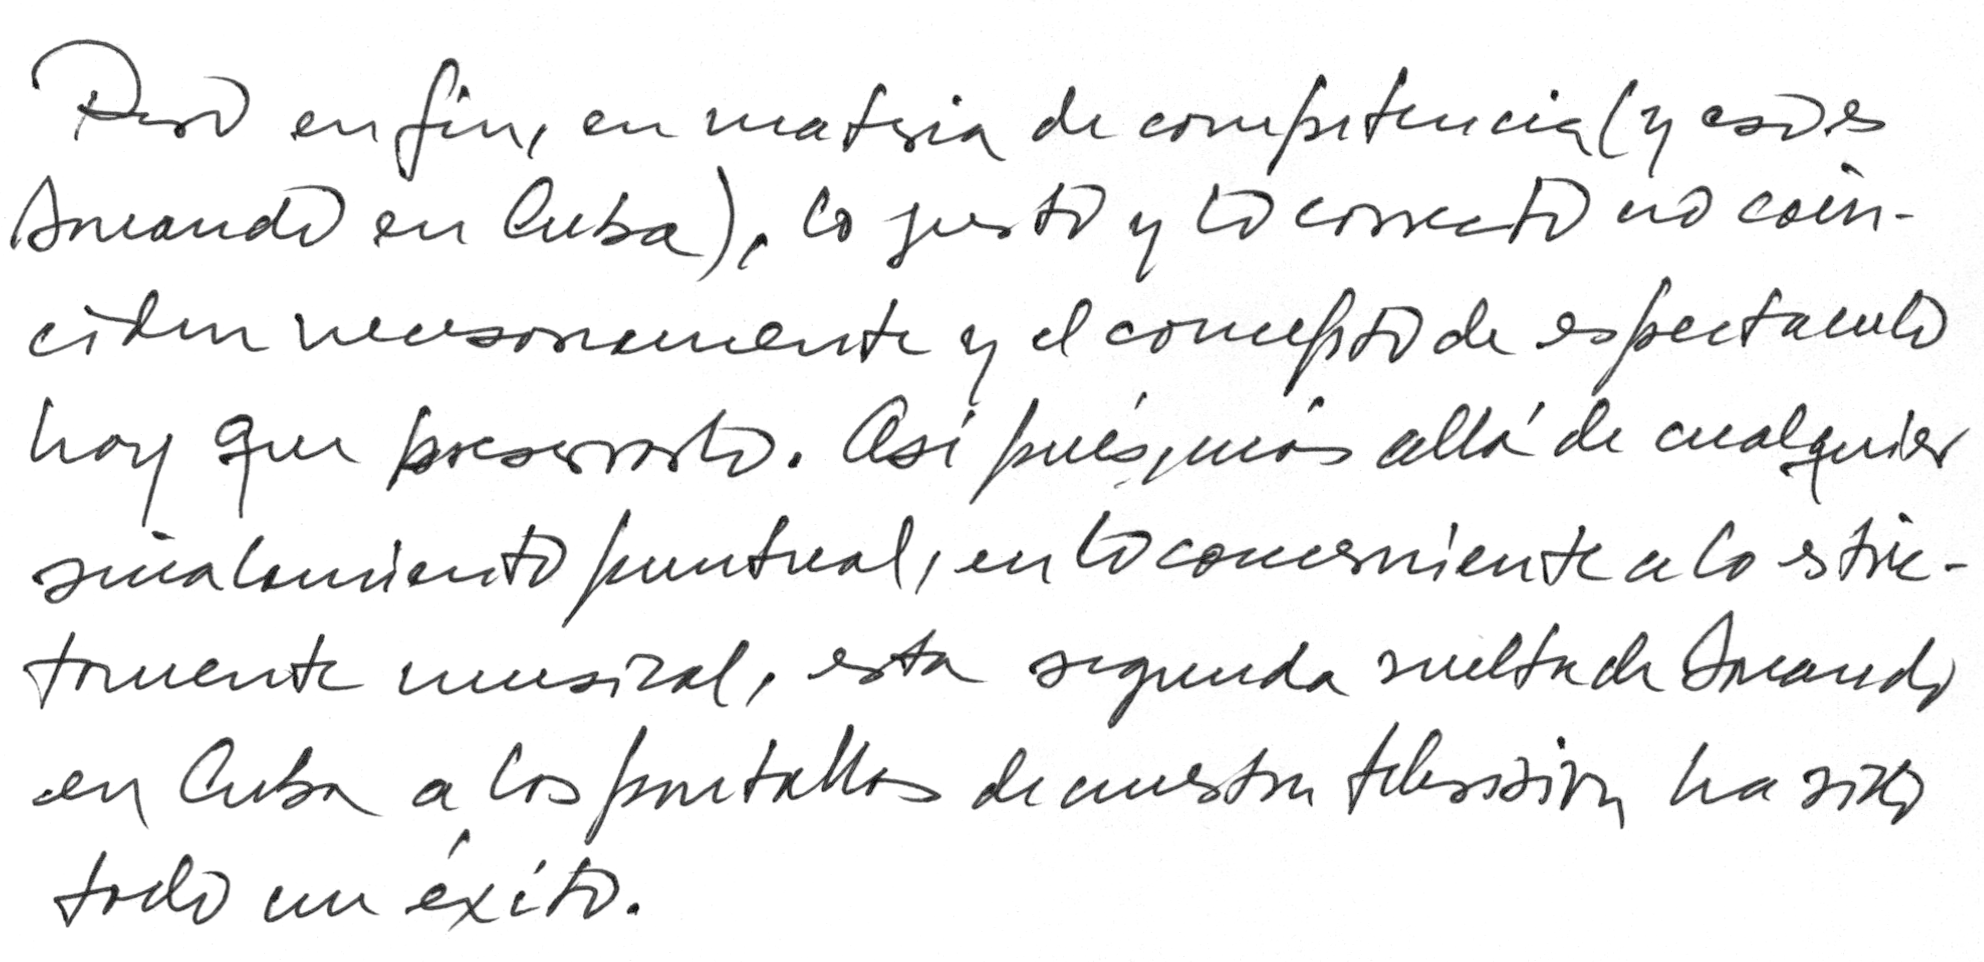 Pero en fin, en materia de competencia (y eso es
Sonando en Cuba), lo justo y lo correcto no coin-
ciden necesariamente y el concepto de espectaculo
hay que preservarlo. Así pués, más allá de cualquier
señalamiento puntual, en lo concerniente a lo estric-
tamente musical, esta segunda vuelta de Sonando
en Cuba a las pantallas de nuestra televisión ha sido
todo un éxito.